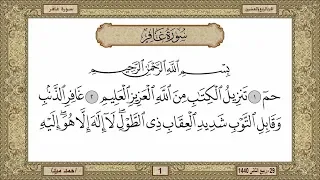 سورة غافر
سُورَةُ غَافِرٍ
بِسْمِ اللَّهِ الرَّحْمَٰنِ الرَّحِيمِ
حمٓ ١ تَنزِيلُ الْكِتَٰبِ مِنَ اللَّهِ الْعَزِيزِ الْعَلِيمِ ٢ غَافِرِ الذَّنۢبِ
وَقَابِلِ التَّوْبِ شَدِيدِ الْعِقَابِ ذِى الطَّوْلِ ۖ لَآ إِلَٰهَ إِلَّا هُوَ ۖ إِلَيْهِ
29- ربيع الثاني 1440
1